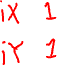 iX 1
iY 1